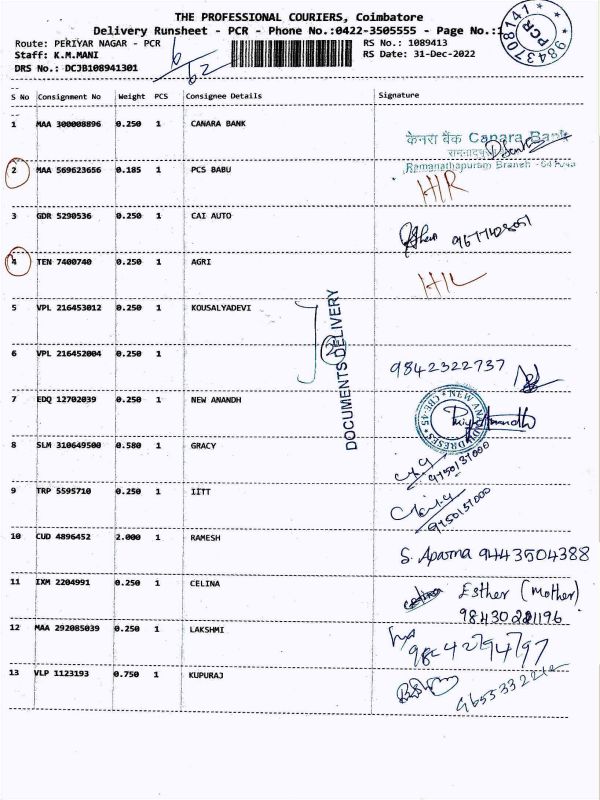 THE PROFESSIONAL COURIERS, Coimbatore
Delivery Runsheet - PCR - Phone No.:0422-3505555 - Page No.:1
Route: PERIYAR NAGAR - PCR RS No.: 1089413
Staff: K.M.MANI RS Date: 31-Dec-2022
DRS No.: DCJB108941301
9843708141 * PCR *
6/62
S No Consignment No Weight PCS Consignee Details Signature
1 MAA 300008896 0.250 1 CANARA BANK
केनरा बैंक Canara Bank
Ramanathapuram Branch
2 MAA 569623656 0.185 1 PCS BABU
3 GDR 5290536 0.250 1 CAI AUTO
4 TEN 7400740 0.250 1 AGRI
5 VPL 216453012 0.250 1 KOUSALYADEVI
DOCUMENTS DELIVERY
2
6 VPL 216452004 0.250 1 9842322737
7 EDQ 12702039 0.250 1 NEW ANANDH
8 SLM 310649500 0.580 1 GRACY 9750137000
9 TRP 5595710 0.250 1 IITT
10 CUD 4896452 2.000 1 RAMESH S. Aparna 9443504388
11 IXM 2204991 0.250 1 CELINA Esther (Mother)
12 MAA 292085039 0.250 1 LAKSHMI
13 VLP 1123193 0.750 1 KUPURAJ